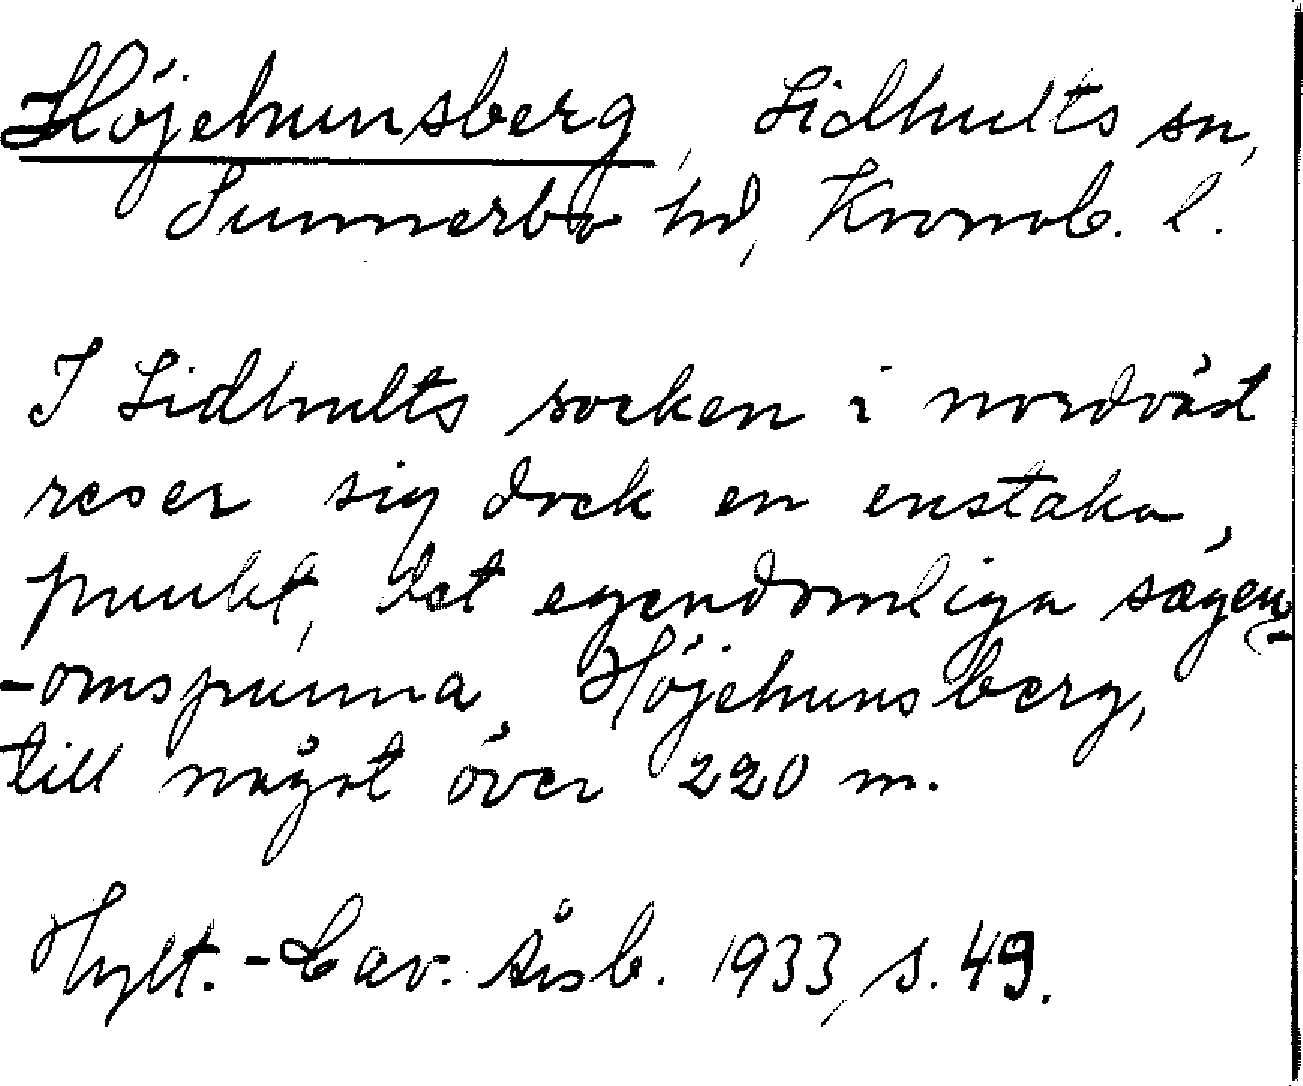 Höjehunsberg, Lidhults sn,
Sunnerbo hd, Kronob. l.
I Lidhults socken i nordväst
reser sig dock en enstaka
punkt, det egendomliga sägen-
-omspunna Höjehunsberg,
till något över 220 m.
Hylt.-Cav. Årsb. 1933, s. 49.